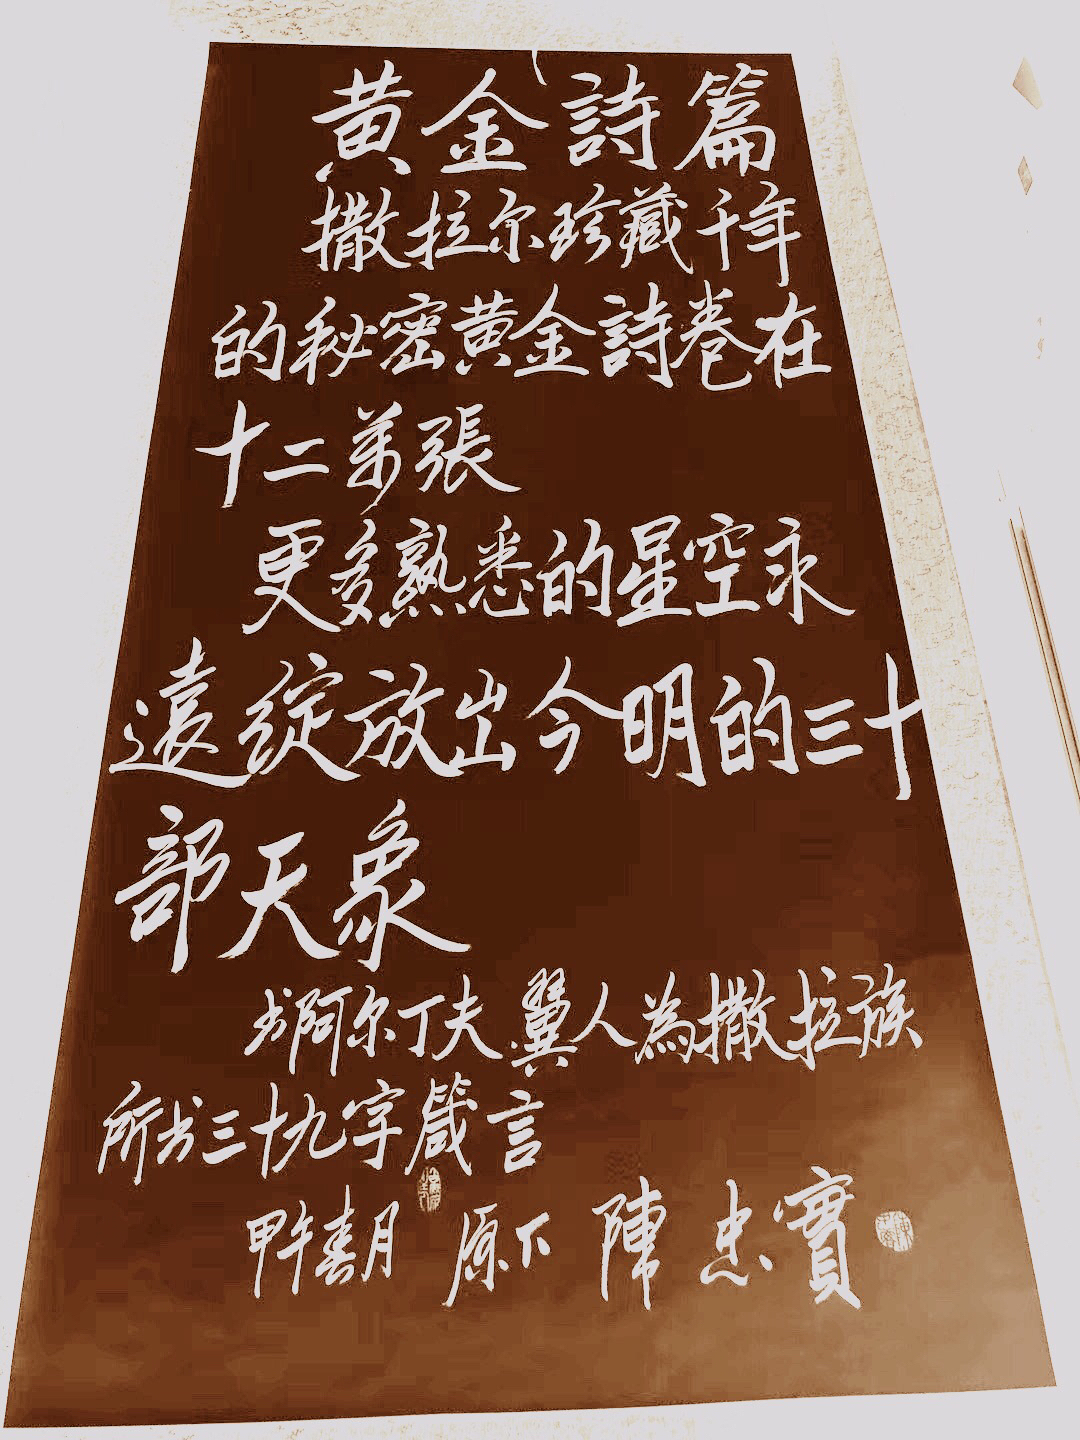 黄金詩篇
撒拉尔珍藏千年
的秘密黄金詩卷在
十二萬張
更多熟悉的星空永
遠綻放出今明的三十
部天象
书阿尔丁夫翼人為撒拉族
所书三十九字箴言
甲午春月 原下 陳忠實